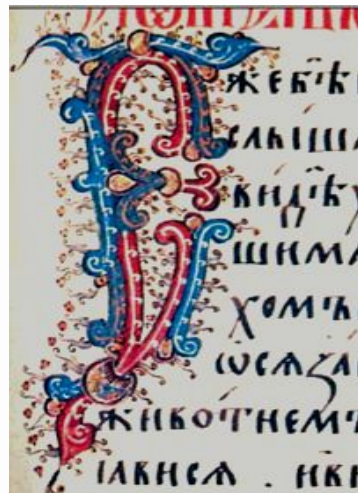 жебѣ
слыша
видѣх
шима
хомъ
ѡсѧза
животнемъ
ꙗвисѧ . иви